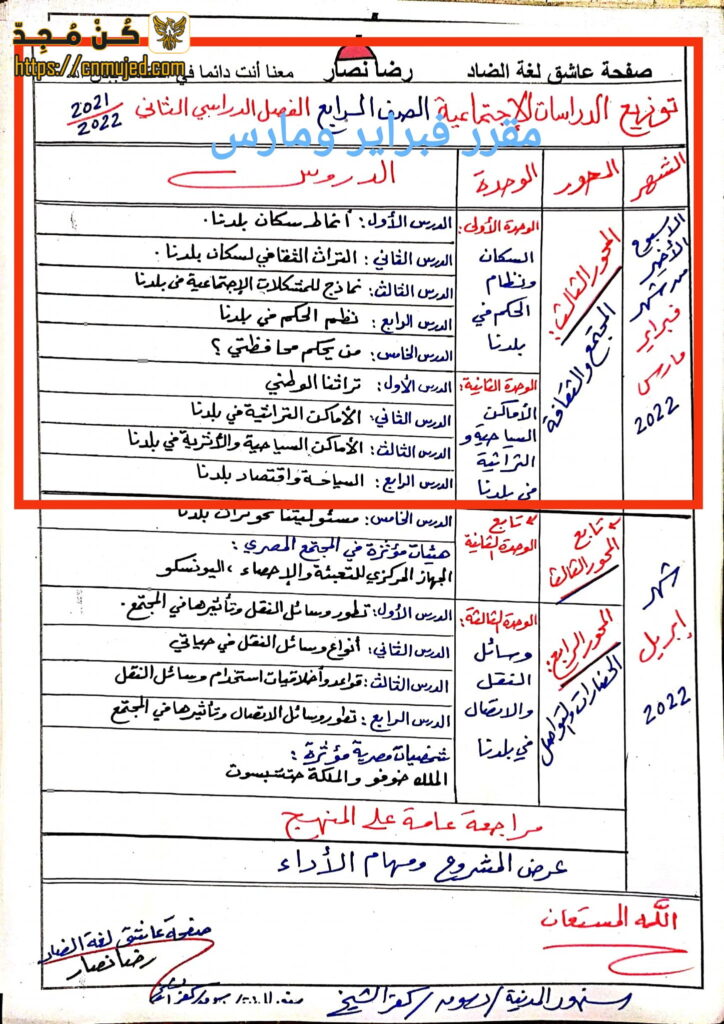 كُنْ مُجِدّ
https://cnmujed.com
صفحة عاشق لغة الضاد رضا نصار معنا أنت دائما في
توزيع الدراسات الإجتماعية الصف الرابع الفصل الدراسي الثاني 2021 / 2022
مقرر فبراير ومارس
الشهر المحور الوحدة الدروس
الأسبوع الأخير من شهر فبراير
مارس
2022
المحور الثالث:
المجتمع والثقافة
الوحدة الأولى:
السكان
ونظام
الحكم في
بلدنا
الدرس الأول: أنماط سكان بلدنا.
الدرس الثاني: التراث الثقافي لسكان بلدنا.
الدرس الثالث: نماذج للمشكلات الإجتماعية في بلدنا
الدرس الرابع: نظم الحكم في بلدنا
الدرس الخامس: من يحكم محافظتي؟
الوحدة الثانية:
الأماكن
السياحية و
التراثية
في بلدنا
الدرس الأول: تراثنا الوطني
الدرس الثاني: الأماكن التراثية في بلدنا
الدرس الثالث: الأماكن السياحية والأثرية في بلدنا
الدرس الرابع: السياحة واقتصاد بلدنا
شهر
إبريل
2022
تابع
المحور الثالث
تابع
الوحدة الثانية
الدرس الخامس: مسئوليتنا نحو تراث بلدنا
هيئات مؤثرة في المجتمع المصري:
الجهاز المركزي للتعبئة والإحصاء، اليونسكو
المحور الرابع:
الحضارات والتواصل
الوحدة الثالثة:
وسائل
النقل
والاتصال
في بلدنا
الدرس الأول: تطور وسائل النقل وتأثيرها في المجتمع.
الدرس الثاني: أنواع وسائل النقل في حياتي
الدرس الثالث: قواعد وأخلاقيات استخدام وسائل النقل
الدرس الرابع: تطور وسائل الاتصال وتأثيرها في المجتمع
شخصيات مصرية مؤثرة:
الملك خوفو والملكة حتشبسوت
مراجعة عامة على المنهج
عرض المشروع ومهام الأداء
الله المستعان
صفحة عاشق لغة الضاد
رضا نصار
سنهور المدينة / دسوق / كفر الشيخ